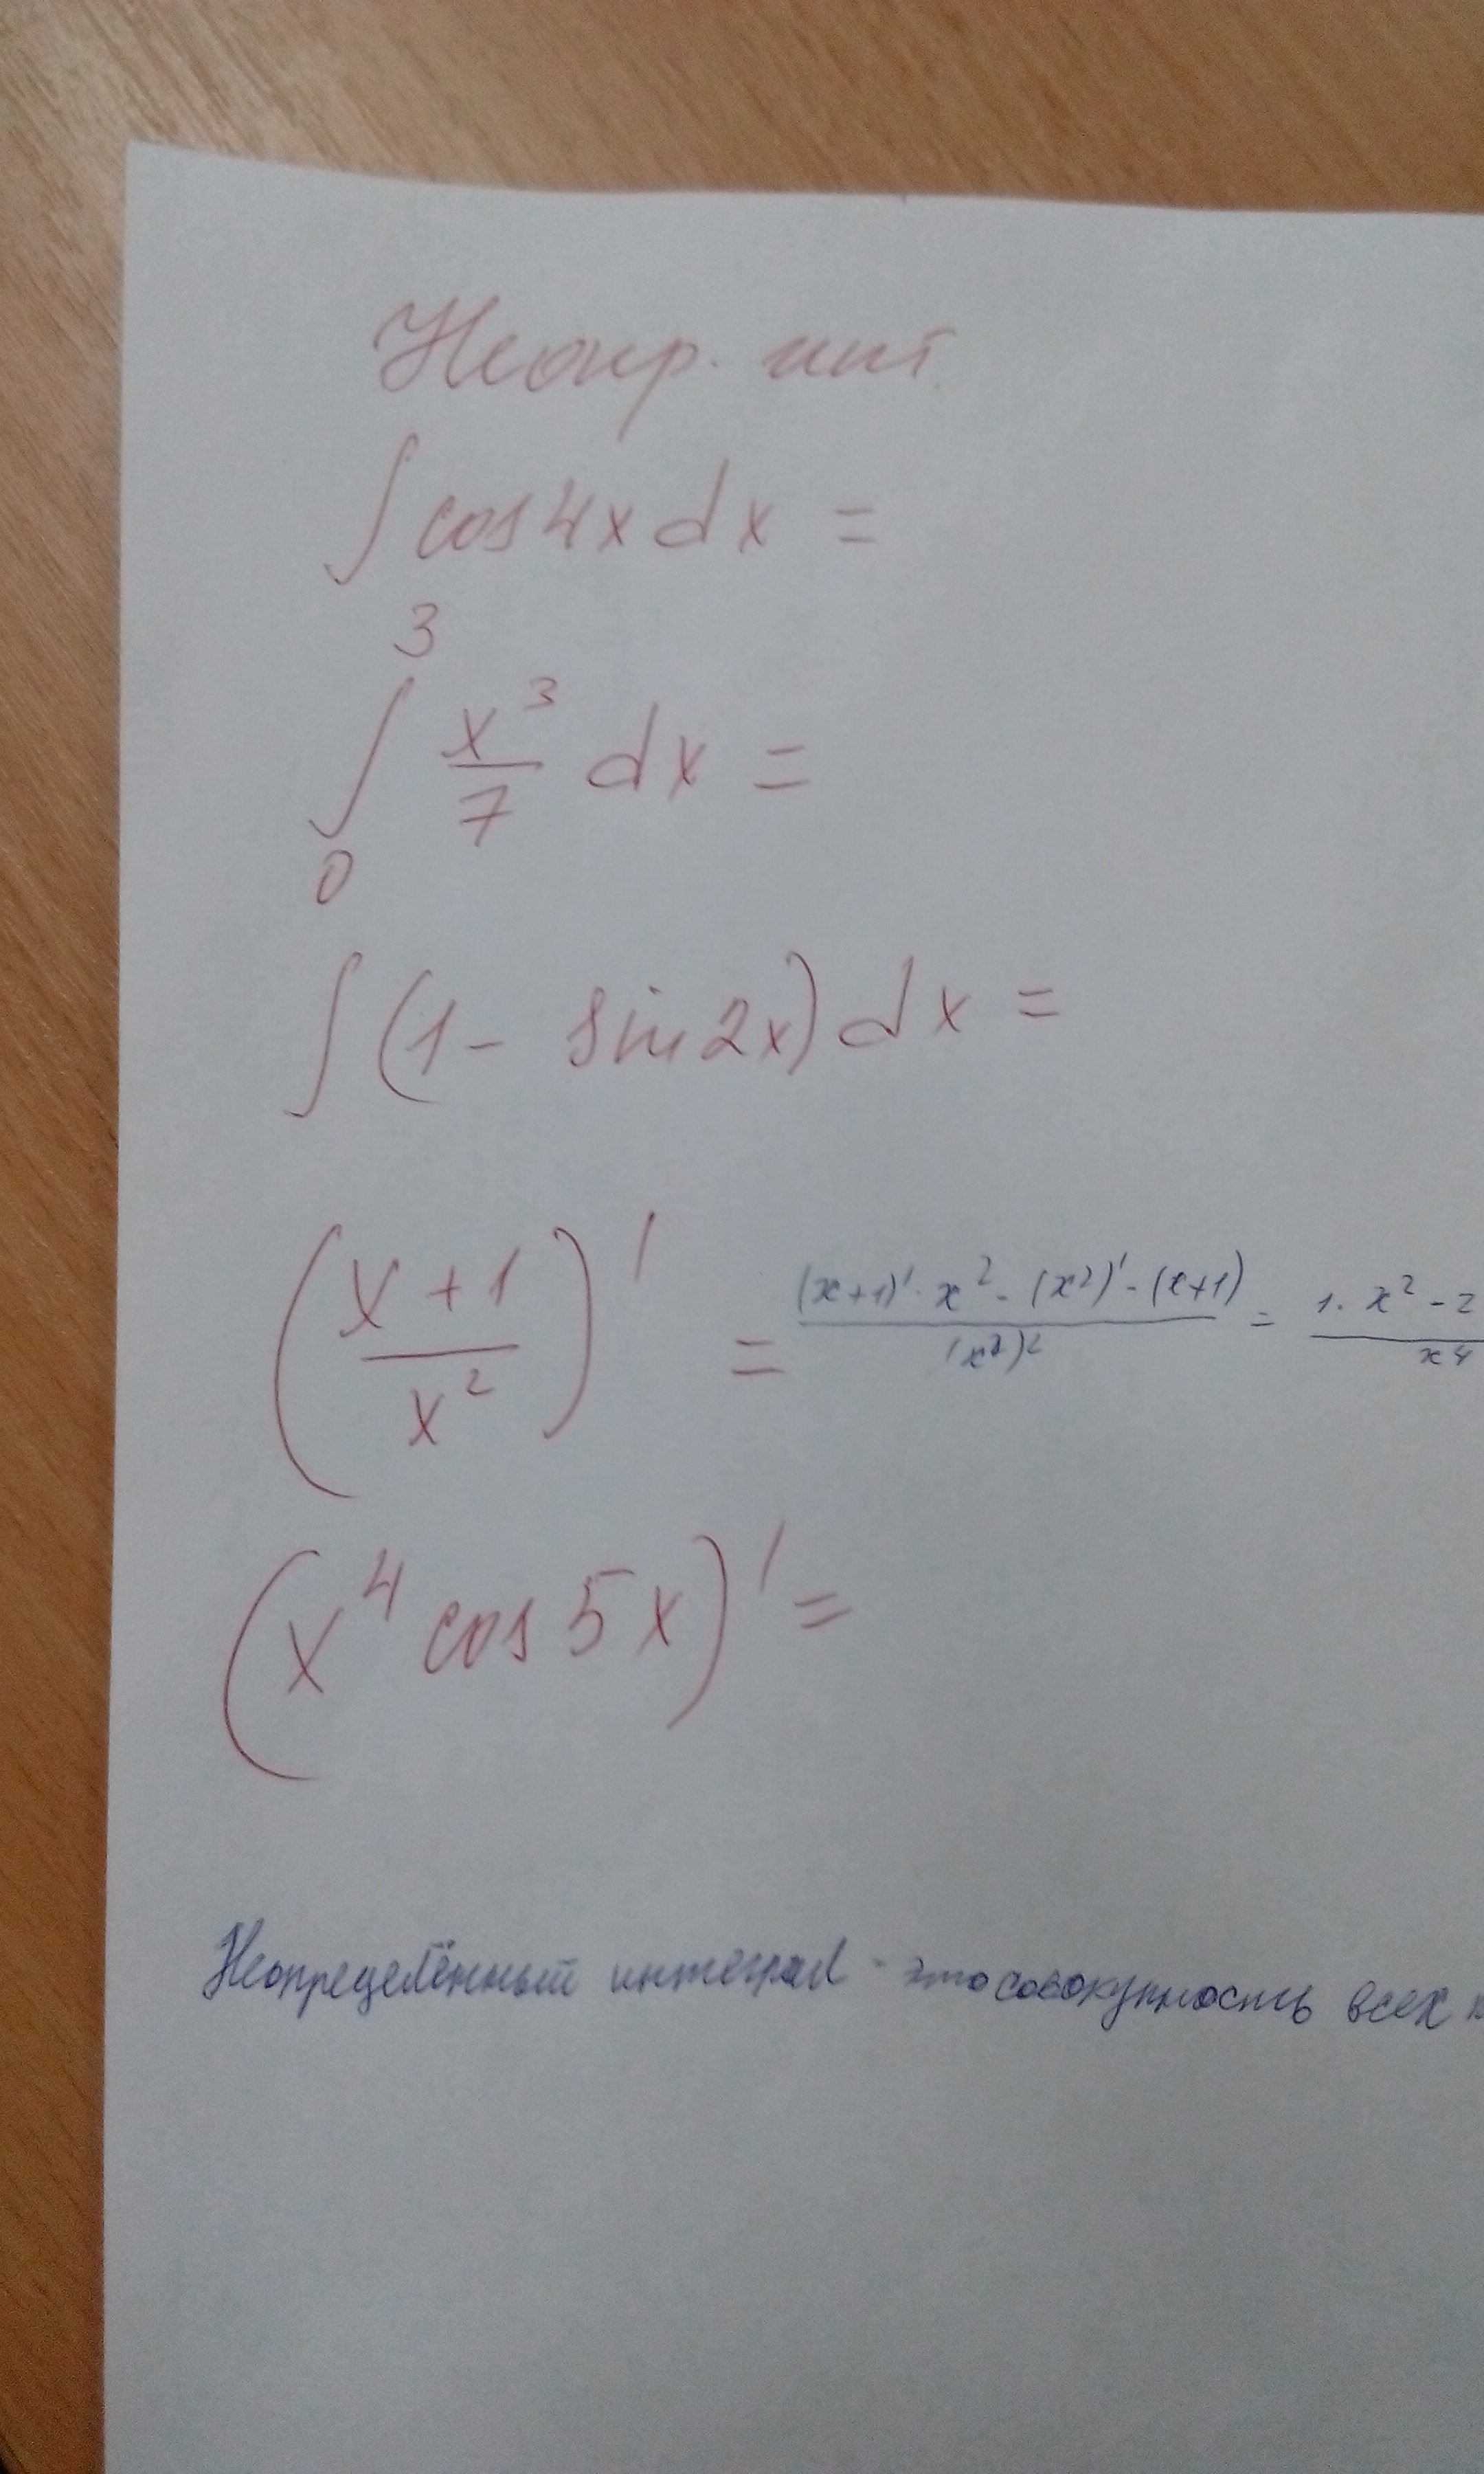 Неопр. инт.
∫ cos 4x dx =
3
∫ x³/7 dx =
0
∫ (1 - sin 2x) dx =
((x + 1)/x²)' = ((x+1)'· x² - (x²)' - (x+1))/(x²)² = (1· x² - 2)/x4
(x⁴ cos 5x)' =
Неопределённый интеграл - это совокупность всех